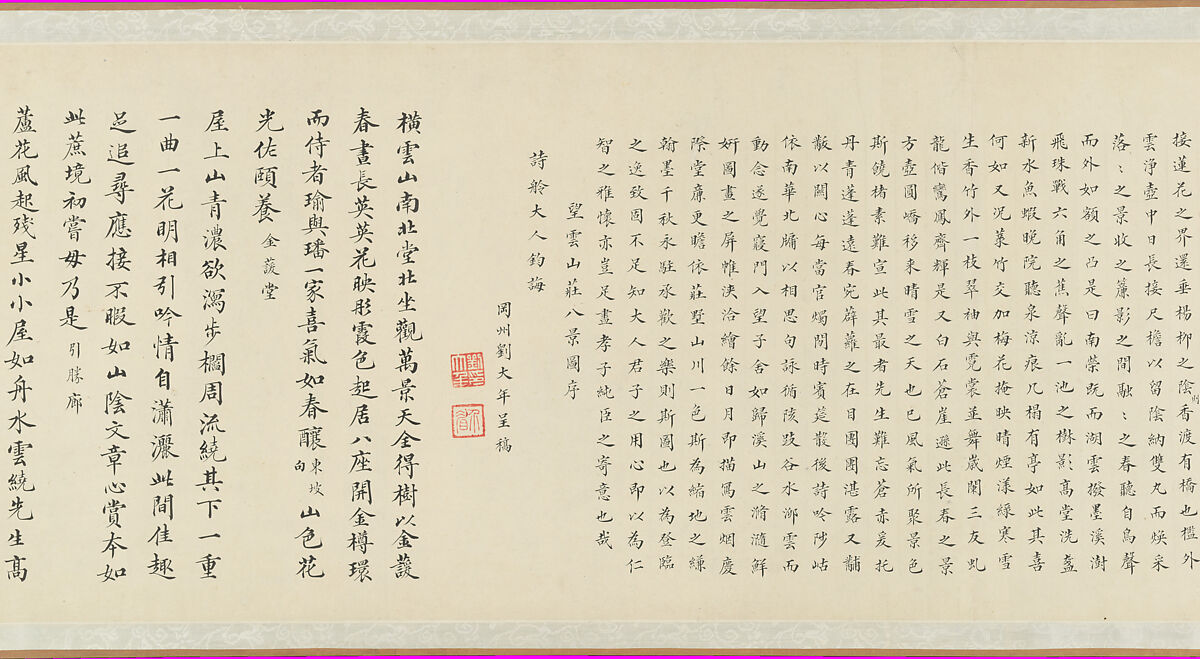 接蓮花之界還垂楊柳之陰香渡有橋也檻外
州
雲淨壺中日長接尺檐以留陰納雙丸而煥采
落〻之景收之簾影之間融〻之春聽自鳥聲
而外如額之凸是曰南榮既而湖雲撥墨溪澍
飛珠戰六角之蕉聲亂一池之樹影高堂洗盞
新水魚蝦晚院聽泉涼痕几榻有亭如此其喜
何如又況菜竹交加梅花掩映晴煙漾綠寒雪
生香竹外一枝翠袖與霓裳並舞歲闌三友虬
龍偕鸞鳳齊輝是又白石蒼崖遜此長春之景
方壺圓嶠移來晴雪之天也已風氣所聚景色
斯饒楮素難宣此其最者先生難忘蒼赤爰托
丹青蓬蓬遠春宛薜蘿之在目團團湛露又黼
黻以關心每當官燭閒時賓筵散後詩吟陟岵
依南華北牖以相思句詠循陔跂谷水泖雲而
動念遂覺寢門入望子舍如歸溪山之滫瀡鮮
妍圖畫之屏帷浹洽繪餘日月即描寫雲烟慶
際堂廉更瞻依莊墅山川一色斯為縮地之縑
翰墨千秋永駐承歡之樂則斯圖也以為登臨
之逸致固不足知大人君子之用心即以為仁
智之雅懷亦豈足盡孝子純臣之寄意也哉
望雲山莊八景圖序
詩舲大人鈞誨
岡州劉大年呈稿
橫雲山南北堂北坐觀萬景天全得樹以金護
春晝長英英花映彤霞色起居八座開金樽環
而侍者瑜與璠一家喜氣如春釀東坡句山色花
光佐頤養金護堂
屋上山青濃欲瀉步櫩周流繞其下一重
一曲一花明相引吟情自瀟灑此間佳趣
足追尋應接不暇如山陰文章心賞本如
此蔗境初嘗毋乃是引勝廊
蘆花風起殘星小小屋如舟水雲繞先生高